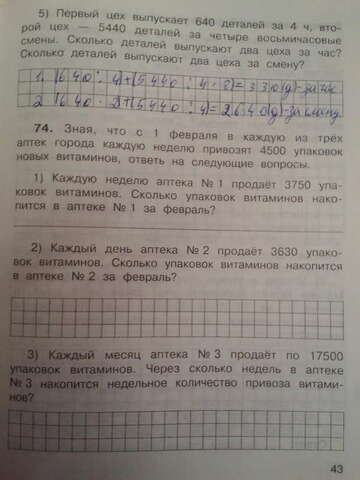 5) Первый цех выпускает 640 деталей за 4 ч, вто-
рой цех — 5440 деталей за четыре восьмичасовые
смены. Сколько деталей выпускают два цеха за час?
Сколько деталей выпускают два цеха за смену?
1. (640 : 4)+(5440 : 4 : 8)=330(д)-за час
2. (640 · 2)+(5440 : 4)=2640(д)-за смену
74. Зная, что с 1 февраля в каждую из трёх
аптек города каждую неделю привозят 4500 упаковок
новых витаминов, ответь на следующие вопросы.
1) Каждую неделю аптека № 1 продаёт 3750 упа-
ковок витаминов. Сколько упаковок витаминов нако-
пится в аптеке № 1 за февраль?
2) Каждый день аптека № 2 продаёт 3630 упако-
вок витаминов. Сколько упаковок витаминов накопится
в аптеке № 2 за февраль?
3) Каждый месяц аптека № 3 продаёт по 17500
упаковок витаминов. Через сколько недель в аптеке
№ 3 накопится недельное количество привоза витами-
нов?
43